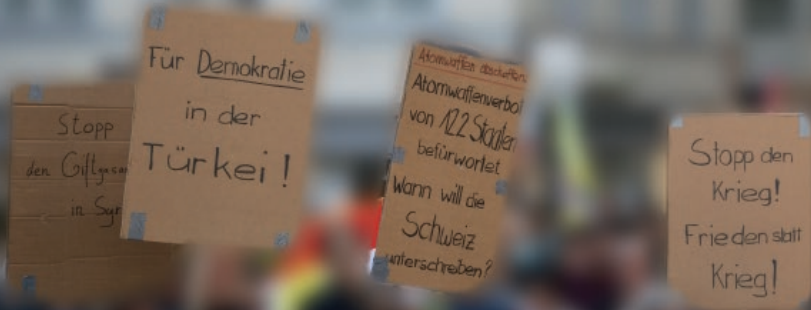 Stopp
den Giftgasan
in Syr
Für Demokratie
in der
Türkei!
Atomwaffen abschaffen
Atomwaffenverbot
von 122 Staaten
befürwortet
Wann will die
Schweiz
unterschreiben?
Stopp den
Krieg!
Frieden statt
Krieg!